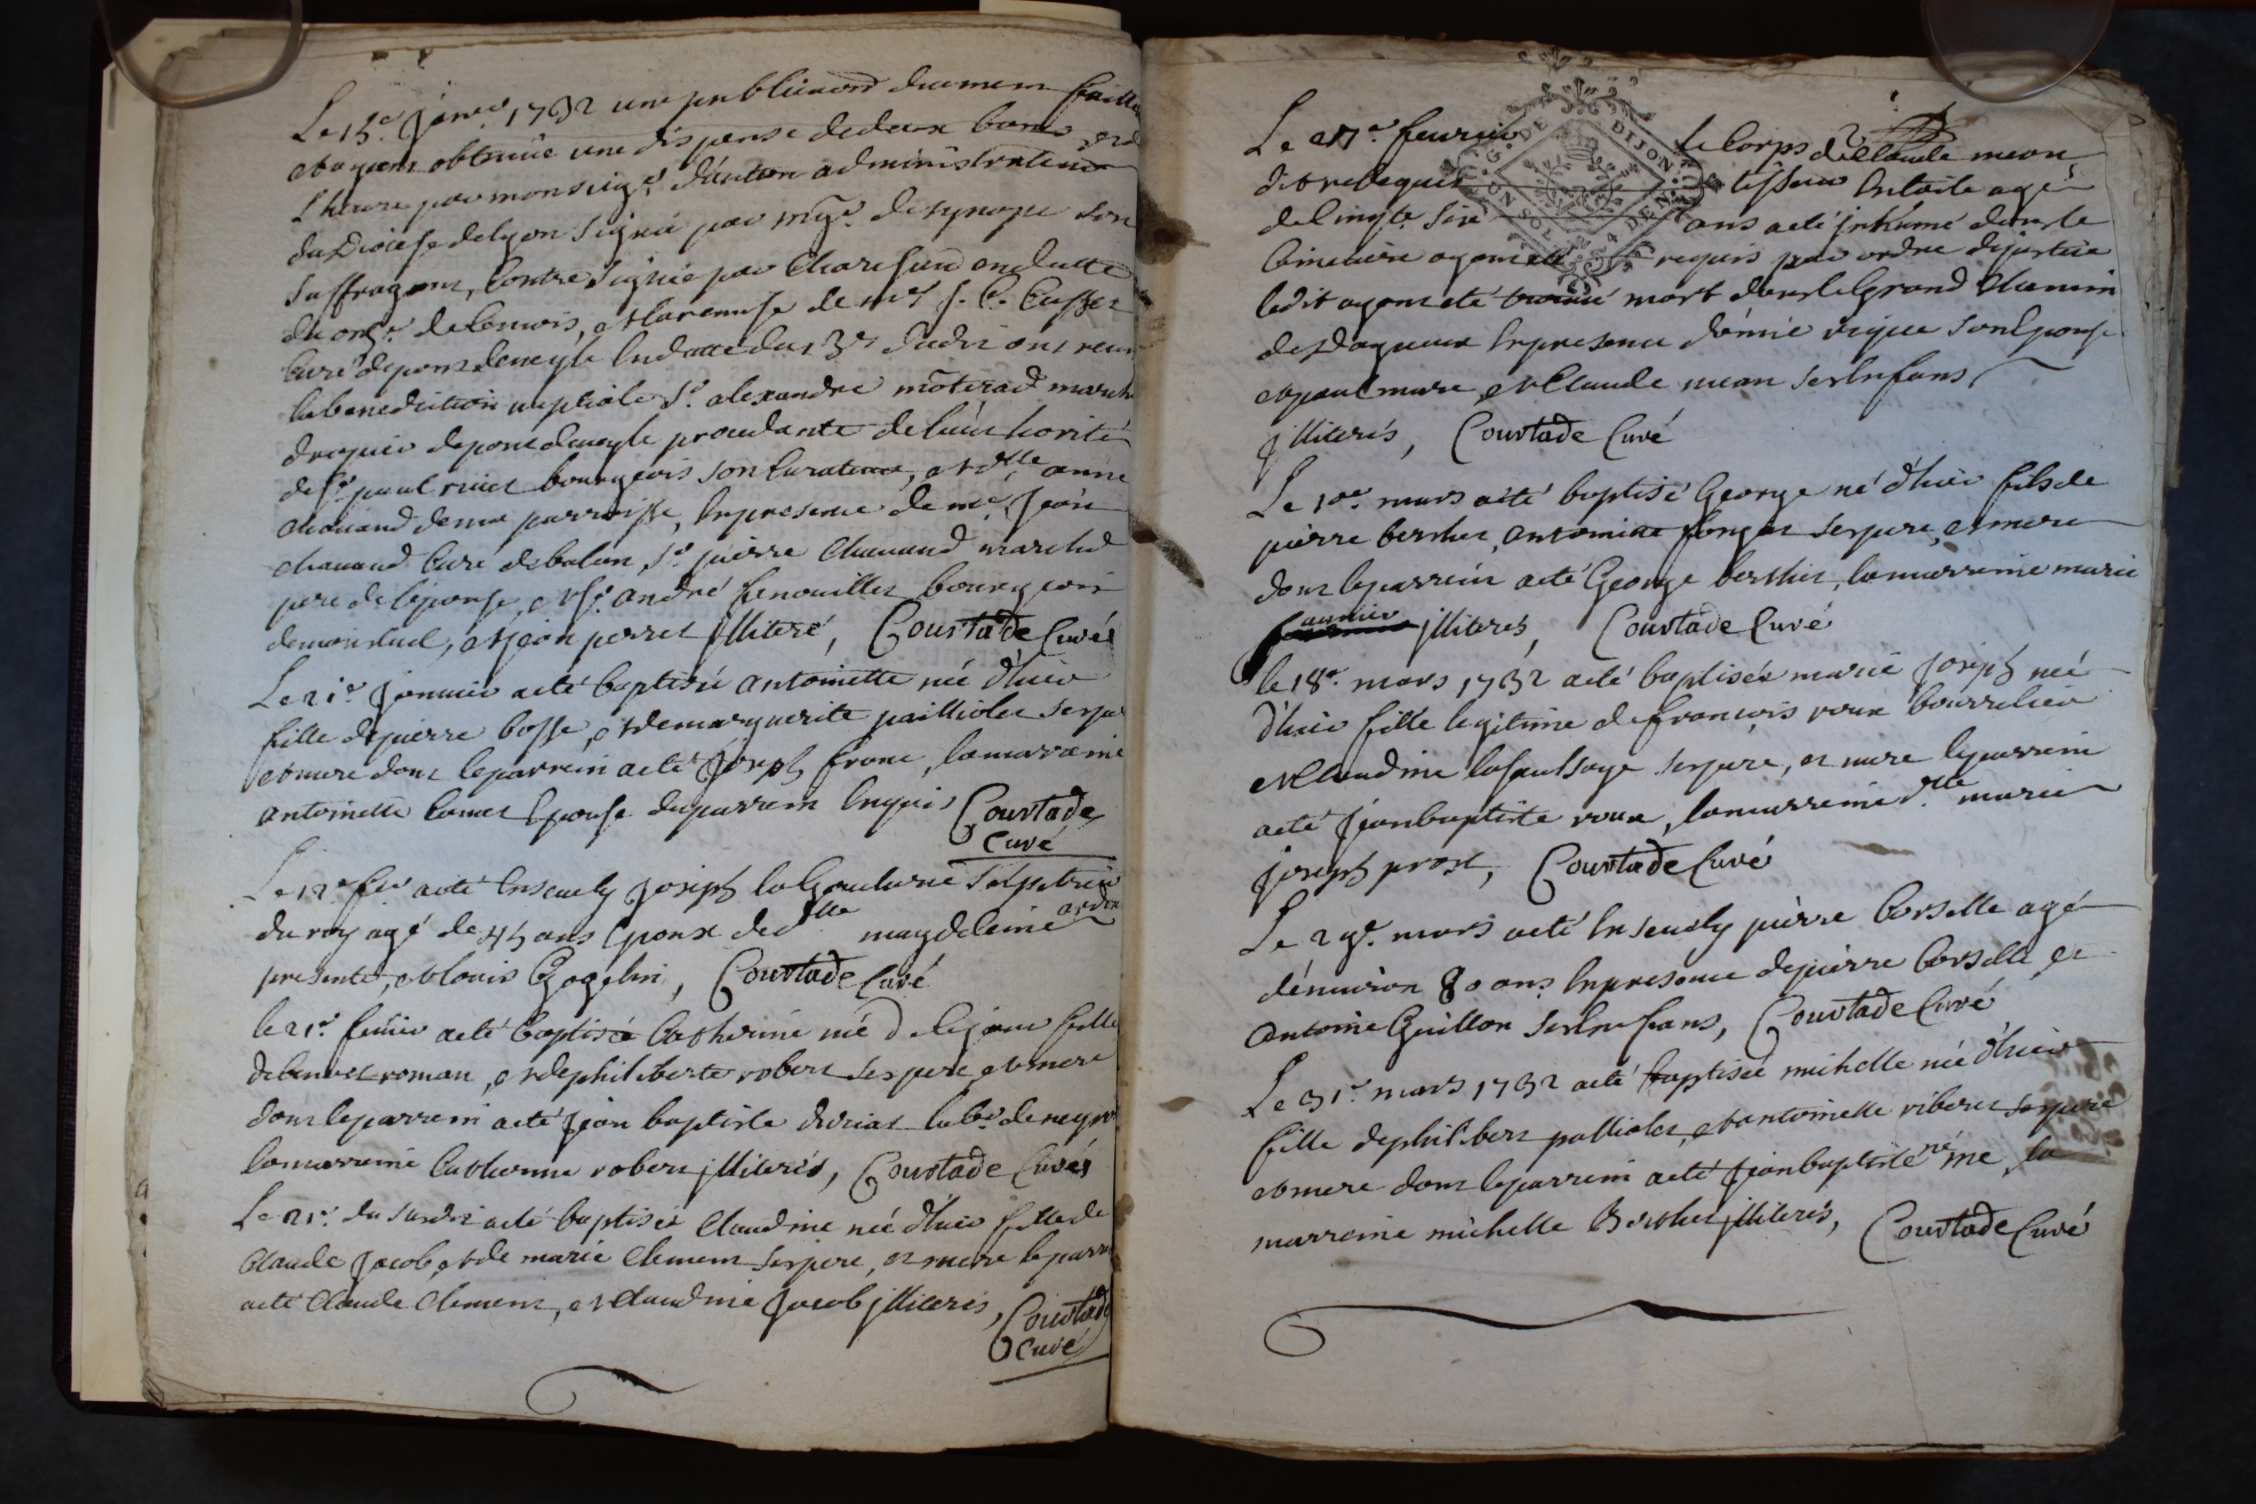 Le 15e. janvr. 1732 une publication deuement faitte
et ayant obtenüe une dispense de deux bans et de
l'heure par monseigr. d'autun administrateur
du Diocese de lyon signée par mgr. de synope son
suffragant, contresignée par
du de et la remise de mr
curé de pontdeveyle en datte du 13e dudt ont receu
la benediction nuptiale sr. alexandre marchd
droguier de pontdeveyle procedante de l'authorité
de sr. paul bourgeois son curateur, et dlle anne
chavand de ma parroisse, en presence de mre. Jean
chavand curé de balan, sr. pierre chavand marchd
pere de l'epouse, et sr. andré fenouillet bourgeois
de montluel, et jean perret illiteré, Courtade Curé
Le 21e janvier a eté baptisée antoinette née d'hier
fille de pierre bosse, et de marguerite pailliolet ses pere
et mere dont le parrein a eté joseph franc, la marraine
antoinette epouse du parrein enquis Courtade
Curé
Le 12e fevr a eté enseuely joseph la Salpetrier
du roy agé de 45 ans epoux de dlle magdeleine
presente, et louis Gogelin, Courtade Curé
le 21e. fevrier a eté baptisée Catherine née de ce jour fille
de benoit roman, et de philiberte robert ses pere et mere
dont le parrein a eté jean baptiste labr. de neyron
la marreine Catherine robert illiterés, Courtade Curé
Le 21e. du susdt a eté baptisée Claudine née d'hier fille de
Claude Jacob, et de marie Clement ses pere, et mere le parrein
a eté Claude Clement, et Claudine Jacob illiterés, Courtade
Curé
Le 27e. fevrier le Corps de Claude mean
dit tisseur en toile agé
de cinqte. six ans a eté inhumé dans le
Cimetiere ayant eté requis par ordre de justice
ledit ayant eté trouvé mort dans le Grand Chemin
de dagneux en presence d'emie son epouse
et paul mure, et Claude mean ses enfans
illiterés, Courtade Curé
Le 1er. mars a eté baptisé George né d'hier fils de
pierre berthet, antoinette forget ses pere, et mere
dont le parrein a eté George berthet, la marreine marie
illiterés, Courtade Curé
le 18e. mars 1732 a eté baptisée marie joseph née
d'hier fille legitime de francois roux bourrelier
et Claudine lasaussaye ses pere, et mere le parrein
a eté jean baptiste roux, la marreine dlle marie
joseph prost, Courtade Curé
Le 29e. mars a eté enseuely pierre Corselle agé
d'environ 80 ans en presence de pierre Corselle et
antoine Guillon ses enfans, Courtade Curé
Le 31e. mars 1732 a eté baptisée michelle née d'hier
fille de philibert pallliolet, et antoinette riberet ses pere
et mere dont le parrein a eté jean baptiste la
marreine michelle Berthet illiterés, Courtade Curé
G. DE DIJON
UN SOL 4 DEN.